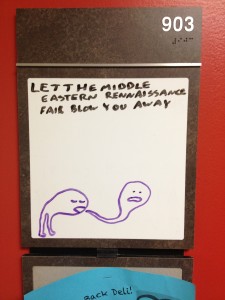 903
LET THE MIDDLE
EASTERN RENNAISSANCE
FAIR BLOW YOU AWAY
Back Deli!